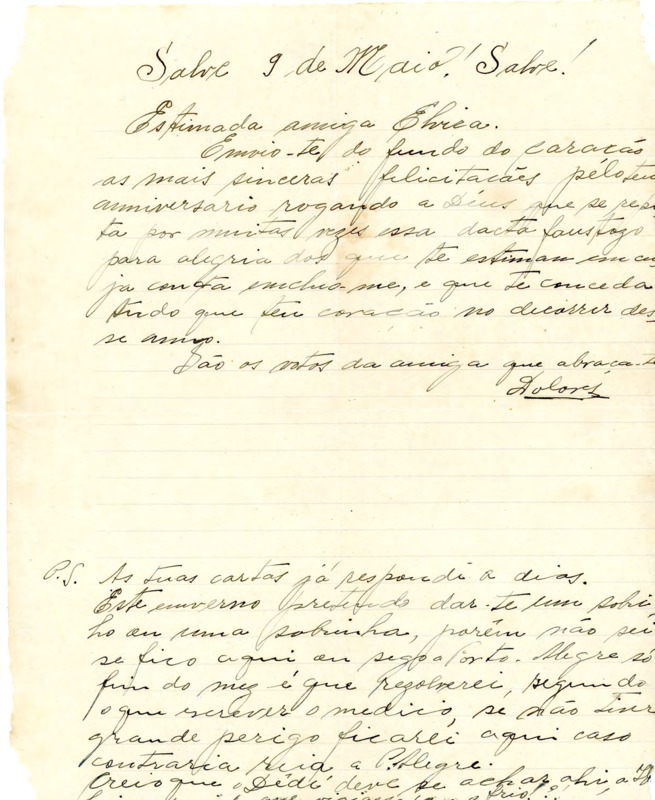 Salve 9 de Maio! Salve!
Estimada amiga Elvira.
Envio-te do fundo do caração
as mais sinceras felicitacães pélo teu
anniversario rogando a Déus que se repi
ta por muitas vezes essa dacta faustozo
para alegria dos que te estimam em cu
ja conta incluo-me, e que te conceda
tudo que teu coração no decorrer des-
se anno.
São os votos da amiga que abraça-te
Dolores
P.S. As tuas cartas já respondi a dias.
Este enverno pretendo dar-te um sobri
ho ou uma sobrinha, porém não sei
se fico aqui ou sego a Porto-Alegre só
fim do mez é que rezolverei, segundo
o que escrever o medico, se não tiver
grande perigo ficarei aqui caso
contraria reia a P. Alegre.
Creio que o Dédé deve se achar ahi a